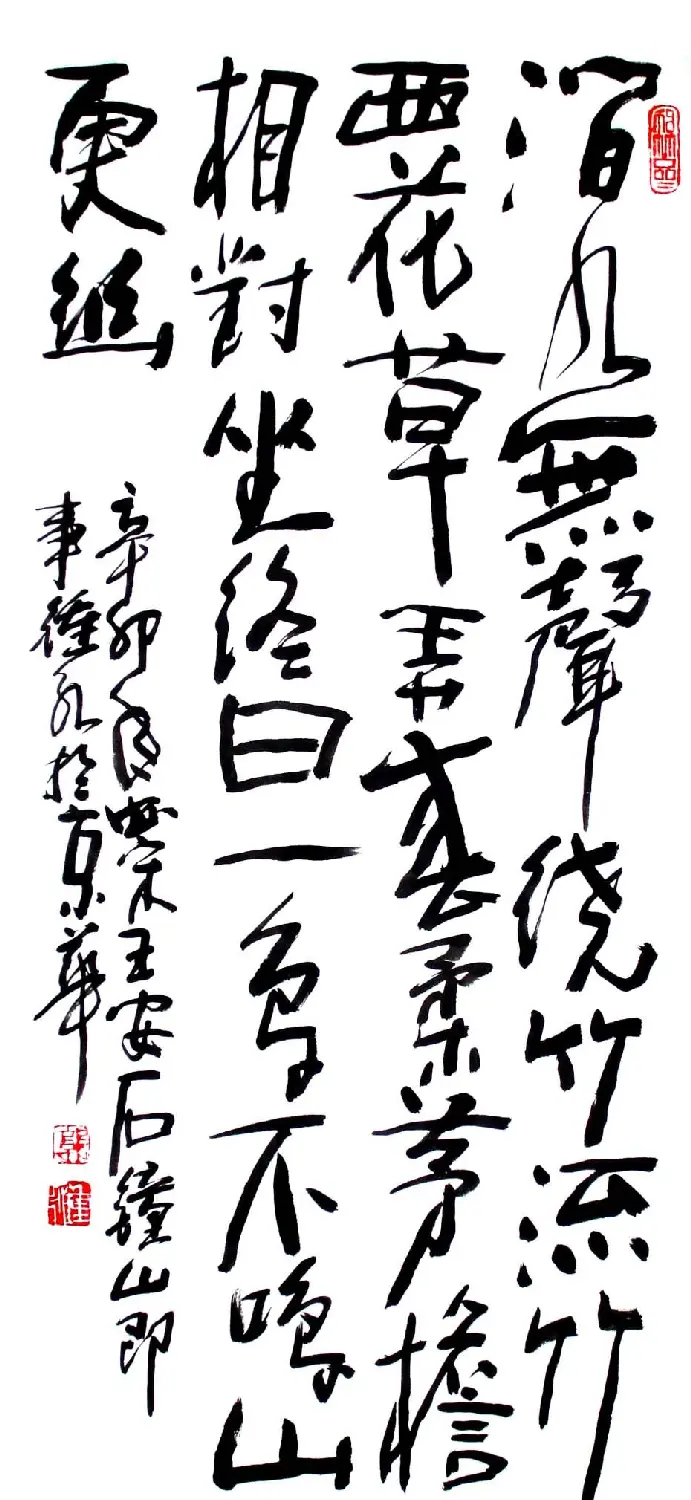 澗水無聲繞竹流竹
西花草弄春柔茅檐
相對坐終日一鳥不鳴山
更幽
辛卯年王安石鐘山即
事於京華